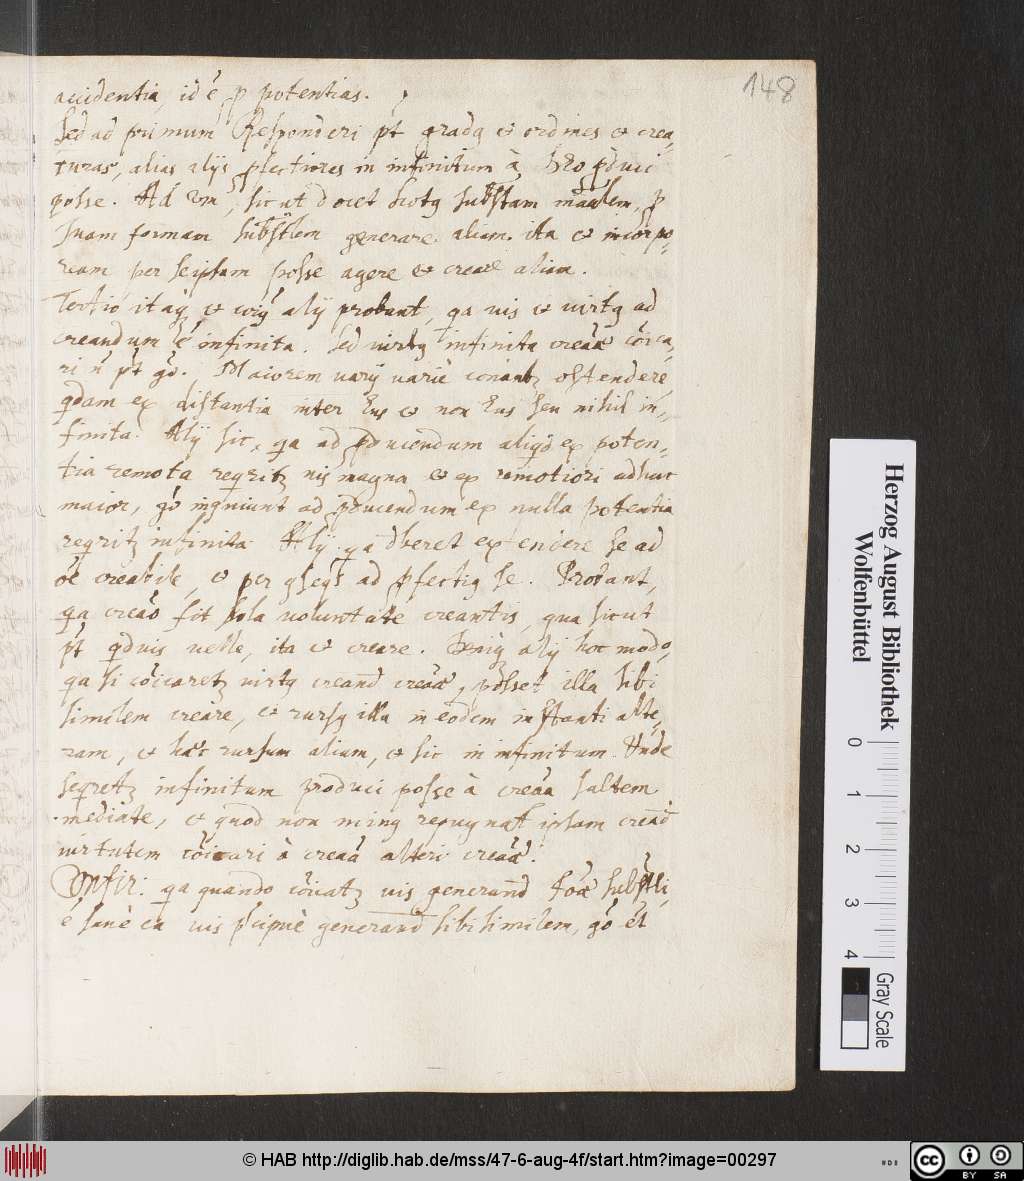 148
accidentia, id ē p potentias.
Sed ad primum Responderi pt̃ gradq et ordines et crea,
turas, alias alijs pfectiores in infinitum à Deo pduci
posse. Ad 2m, sicut docet Scotq substam mãalem, p
suam formam substlem generare aliam. ita et incorpo,
ream per seipsam posse agere et creare aliam.
Tertio itaq et alij probant, qa vis et virtq ad
creandum ē infinita. Sed virtq infinita creãæ cõica,
ri ñ pt̃ gõ. Maiorem varij variè conantr ostendere,
qdam ex distantia inter Ens et non Ens seu nihil in,
finita. Alij sic, qa ad pducendum aliqd ex poten,
tia remota reqritr vis magna et ex remotiori adhuc
maior, gõ inqiunt ad pducendum ex nulla potentia
reqritr infinita. Alij qa dberet extendere se ad
õe creabile, et per qseqs ad pfectiq se. Probant,
qa creaõ fit sola voluntate creantis, qua sicut
pt̃ qduis velle, ita et creare. Deniq alij hoc modo,
qa si cõicaretr virtq creand creãæ, posset illa sibi
similem creare, et rursq illa in eodem instanti alte,
ram, et hæc rursum aliam, et sic in infinitum. Unde
seqretr infinitum produci posse à creãa saltem
mediate, et quod non minq repugnat ipsam creand
virtutem cõicari à creãa alteri creãæ.
Confir: qa quando cõicatr vis generand foã substli
ē sanè ea vis pcipuè generand sibi similem, gõ et
Herzog August Bibliothek
Wolfenbüttel
0 1 2 3 4
Gray Scale
© HAB http://diglib.hab.de/mss/47-6-aug-4f/start.htm?image=00297
cc BY SA